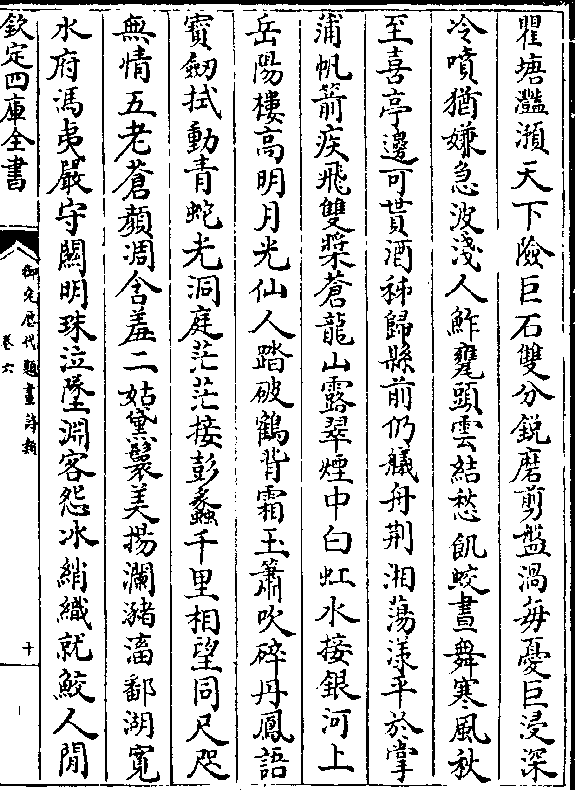 瞿塘灩澦天下險巨石雙分銳磨剪盤渦每憂巨浸深
冷噴猶嫌急波淺人鮓甕頭雲結愁飢蛟晝舞寒風秋
至喜亭邊可貰酒秭歸縣前仍艤舟荆湘蕩漾平於掌
蒲帆箭疾飛雙槳蒼龍山露翠煙中白虹水接銀河上
岳陽樓高明月光仙人踏破鶴背霜玉簫吹碎丹鳳語
寳劒拭動青蛇光洞庭茫茫接彭蠡千里相望同尺咫
無情五老蒼顔凋含羞二姑黛鬟美揚瀾豬湢鄱湖寛
水府馮夷嚴守關明珠泣墜淵客怨冰綃織就鮫人閒
欽定四庫全書
御定歷代題畫詩類
卷六
十